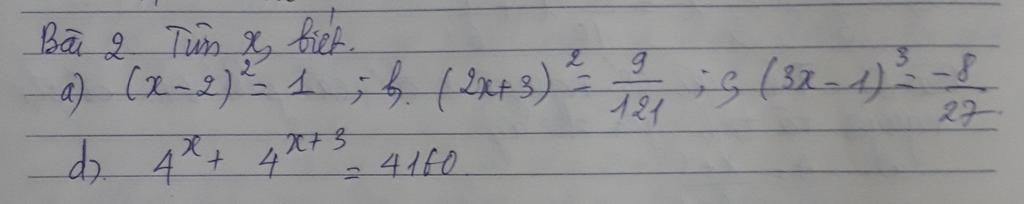 Bài 2 Tìm x, biết.
a) (x-2)² = 1 ; b. (2x+3)² = 9/121 ; c, (3x-1)³ = -8/27
d). 4^x + 4^(x+3) = 4160